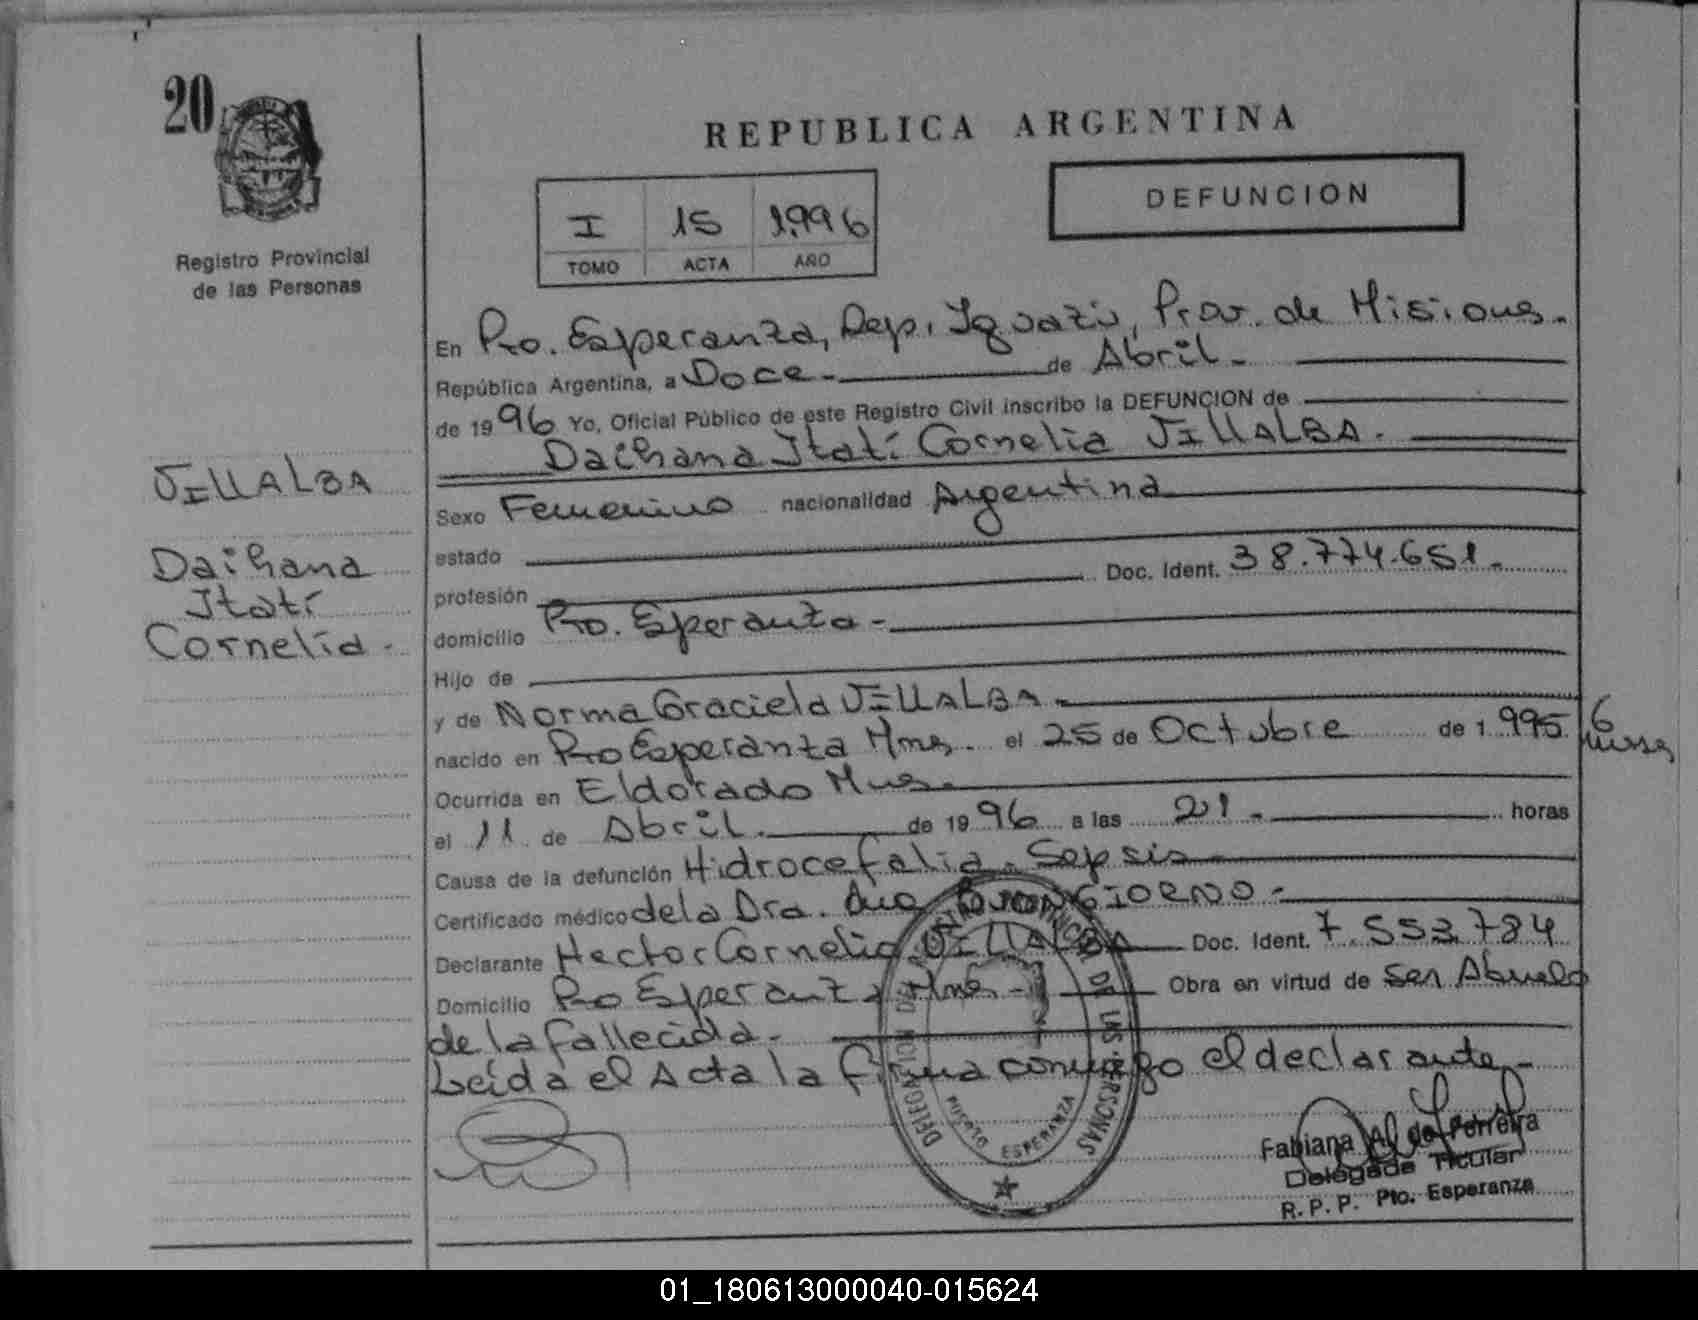 20
REPUBLICA ARGENTINA
DEFUNCION
I 15 1.996
TOMO ACTA AÑO
Registro Provincial
de las Personas
En Pto. Esperanza, Dep. Iguazú, Prov. de Misiones.
República Argentina, a Doce.- de Abril.-
de 1996 Yo, Oficial Público de este Registro Civil inscribo la DEFUNCION de
Daihana Itatí Cornelia VILLALBA.
VILLALBA
Daihana
Itatí
Cornelia.
Sexo Femenino nacionalidad Argentina
estado
profesión Doc. Ident. 38.774.651.
domicilio Pto. Esperanza-
Hijo de
y de Norma Graciela VILLALBA.
nacido en Pto Esperanza Mnes. el 25 de Octubre de 1.995 6
Ocurrida en Eldorado Mnes.
el 11 de Abril. de 1996 a las 21.- horas
Causa de la defunción Hidrocefalia. Sepsis-
Certificado médico de la Dra. Ana BUONGIORNO-
Declarante Hector Cornelio VILLALBA Doc. Ident. 7.553.784
Domicilio Pto Esperanza Mnes- Obra en virtud de Ser Abuelo
de la fallecida.-
Leída el Acta la firma conmigo el declarante.-
DELEGACION REGISTRO PROVINCIAL DE LAS PERSONAS
PUERTO ESPERANZA
Fabiana A. de Ferreira
Delegada Titular
R. P. P. Pto. Esperanza
01_180613000040-015624